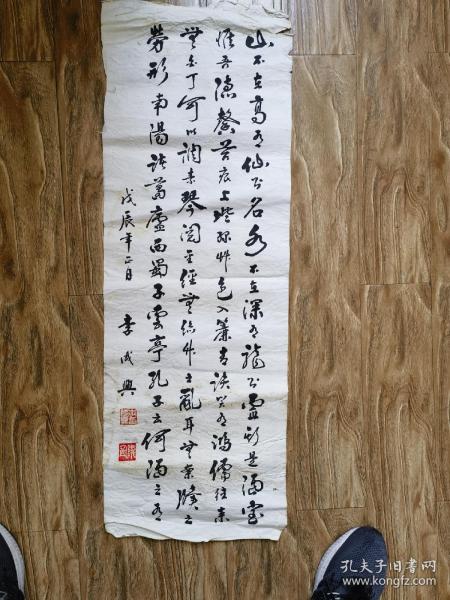 山不在高有仙则名水不在深有龙则灵斯是陋室
惟吾德馨苔痕上阶绿草色入帘青谈笑有鸿儒往来
无白丁可以调素琴阅金经无丝竹之乱耳无案牍之
劳形南阳诸葛庐西蜀子云亭孔子云何陋之有
戊辰年二月 李成兴
孔夫子旧书网
www.kongfz.com